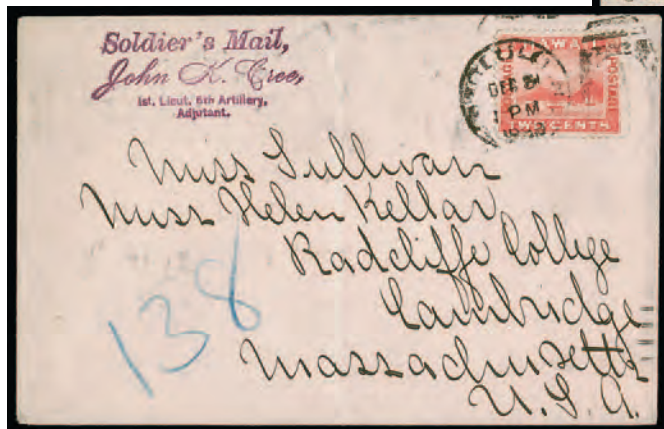 Soldier's Mail,
John K. Cree,
1st. Lieut. 6th Artillery,
Adjutant.
HAWAII
POSTAGE
POSTAGE
TWO CENTS
HONOLULU
DEC
PM
Miss Sullivan
Miss Helen Kellar
Radcliffe College
Cambridge
Massachusetts
U.S.A.
138